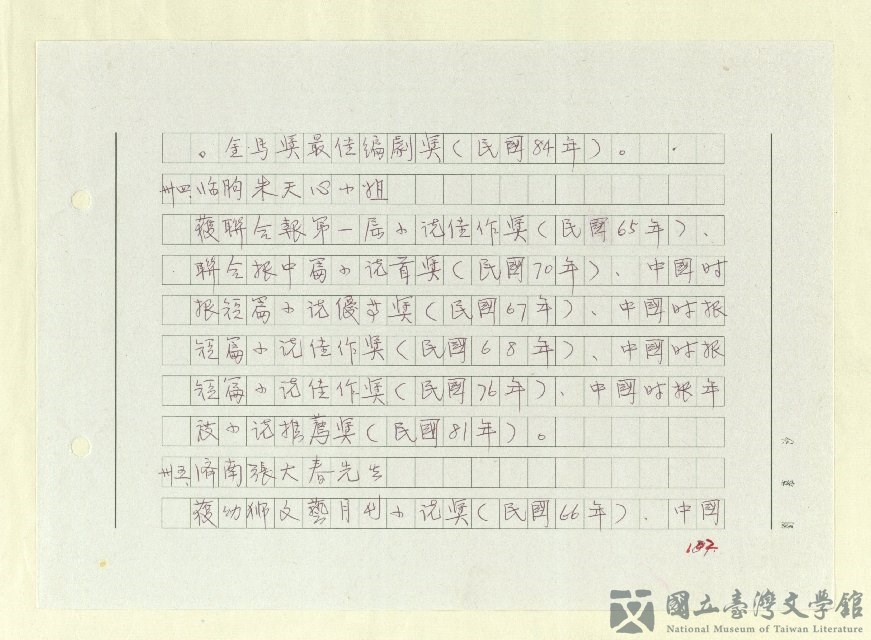 。金马奖最佳编劇奖(民國84年)。
卅四、临朐朱天心小姐
獲聯合報第一屆小说佳作奖(民國65年)、
聯合报中篇小说首奖(民國70年)、中國时
报短篇小说優等奖(民國67年)、中國时报
短篇小说佳作奖(民國68年)、中國时报
短篇小说佳作奖(民國76年)、中國时报年
度小说推薦奖(民國81年)。
卅五、济南張大春先生
獲幼狮文藝月刊小说奖(民國66年)、中國
187.
國立臺灣文學館
National Museum of Taiwan Literature